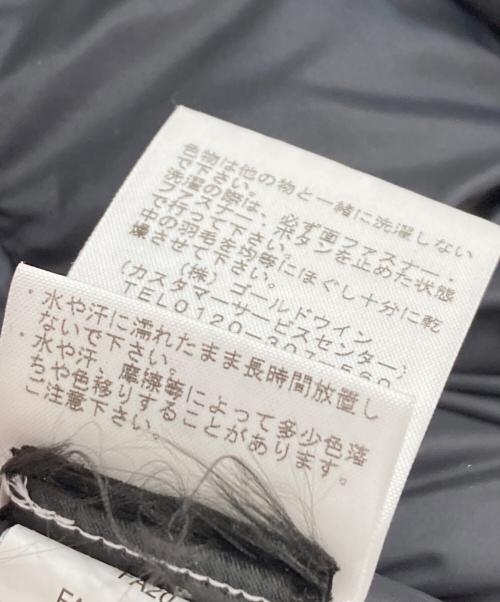 色物は他の物と一緒に洗濯しない
で下さい。
洗濯の際は、必ず面ファスナー・
ファスナー、ボタンを止めた状態
で行って下さい。
中の羽毛を均等にほぐし十分に乾
燥させて下さい。
(株)ゴールドウイン
(カスタマーサービスセンター)
TEL0120-307-560
・水や汗に濡れたまま長時間放置し
ないで下さい。
・水や汗、摩擦等によって多少色落
ちや色移りすることがあります。
ご注意下さい。